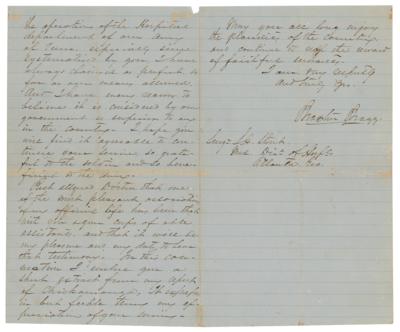 the operations of the Hospital
department of our army
of Tenn, especially since
systematized by you, I have
always desired as perfect so
far as our means allowed.
And I have many reason to
believe it is considered by our
government as superior to any
in the country. I hope you
will find it agreeable to con-
tinue your services, so grate-
ful to the soldier and so honor-
to the army.
Rest assured Doctor that one
of the most pleasant associations
of my official life has been that
with our corps of able
assistants, and that it will be
my pleasure and my duty to bear
that testimony. In this con-
nection I enclose you a
short extract from my report
of Chickamauga. It expresses
in but feeble terms my ap-
preciation of your services.
May you all long enjoy
the plaudits of the country
and continue to reap the reward
of faithful services.
I am very respectfully
and truly Yrs.
Braxton Bragg
Surgn S.H. Stout
Med. Dir. of Hospts
Atlanta Geo.